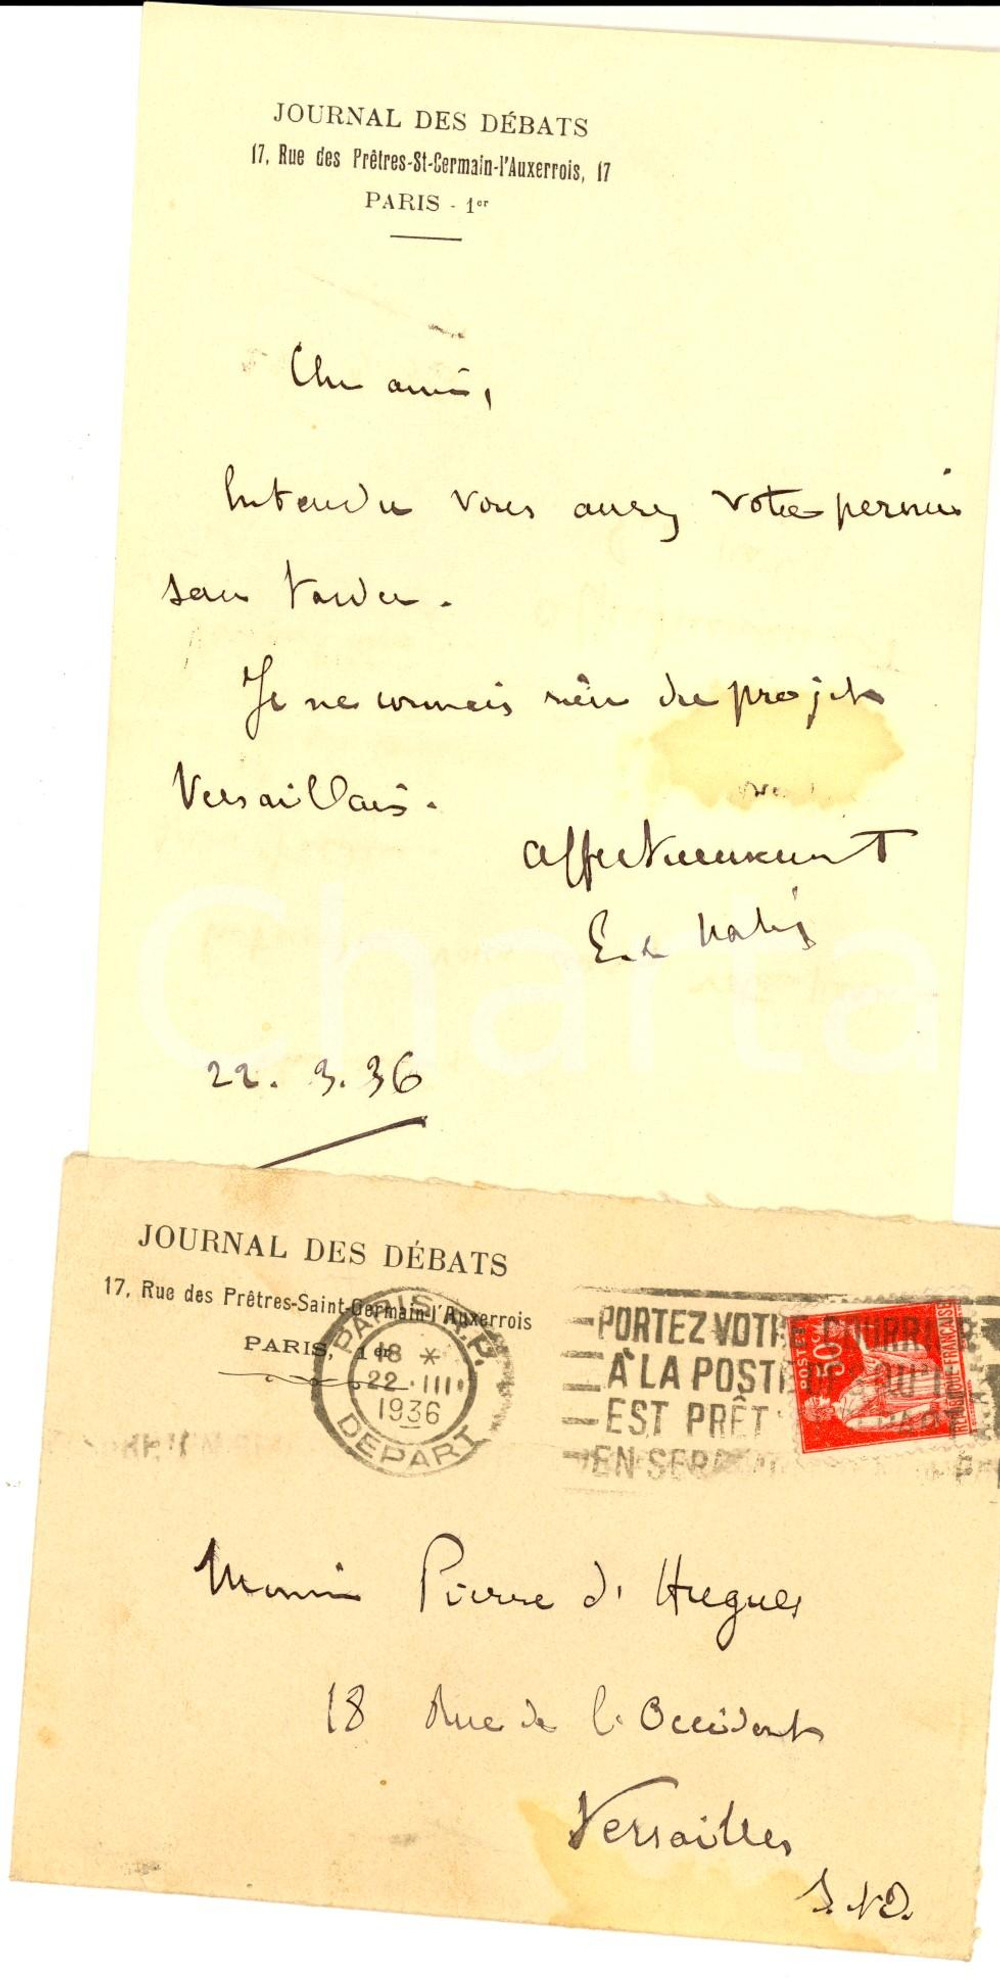 JOURNAL DES DÉBATS
17, Rue des Prêtres-St-Germain-l'Auxerrois, 17
PARIS - 1er
Cher ami,
Entendu vous aurez votre permis
sans tarder.
Je ne connais rien du projet
Versaillais.
affectueusement
E. de Nalèj
22. 3. 36
Charta
JOURNAL DES DÉBATS
17, Rue des Prêtres-Saint-Germain-l'Auxerrois
PARIS, 1er
PARIS R.P.
18 *
22 · III
1936
DEPART
PORTEZ VOTRE COURRIER
A LA POSTE DES QU'IL
EST PRÊT
EN SERA
POSTES
50c
REPUBLIQUE FRANCAISE
Monsieur Pierre d'Hugues
18 Rue de l'Occident
Versailles
S. & O.